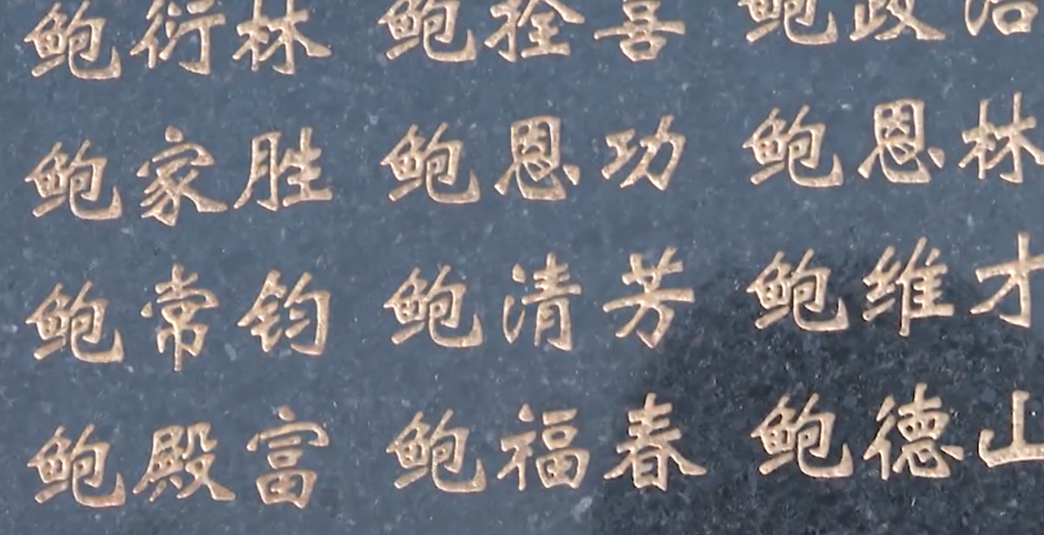 鲍衍林 鲍拴喜 鲍政治
鲍家胜 鲍恩功 鲍恩林
鲍常钧 鲍清芳 鲍维才
鲍殿富 鲍福春 鲍德山